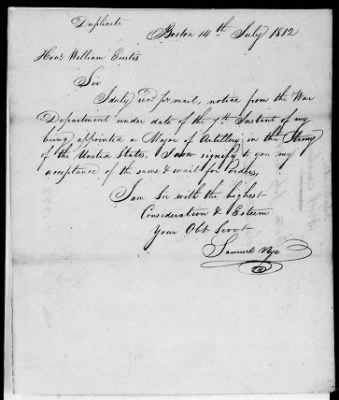 Duplicate
Boston 14th July 1812
Honl William Eustis
Sir
I duly recd pr mail, notice from the War
Department under date of the 9th Instant of my
being appointed a Major of Artillery in the Army
of the United States. I now signify to you my
acceptance of the same & wait for Orders,
I am Sir with the highest
Consideration & Esteem
Your Obt Servt
Samuel Nye